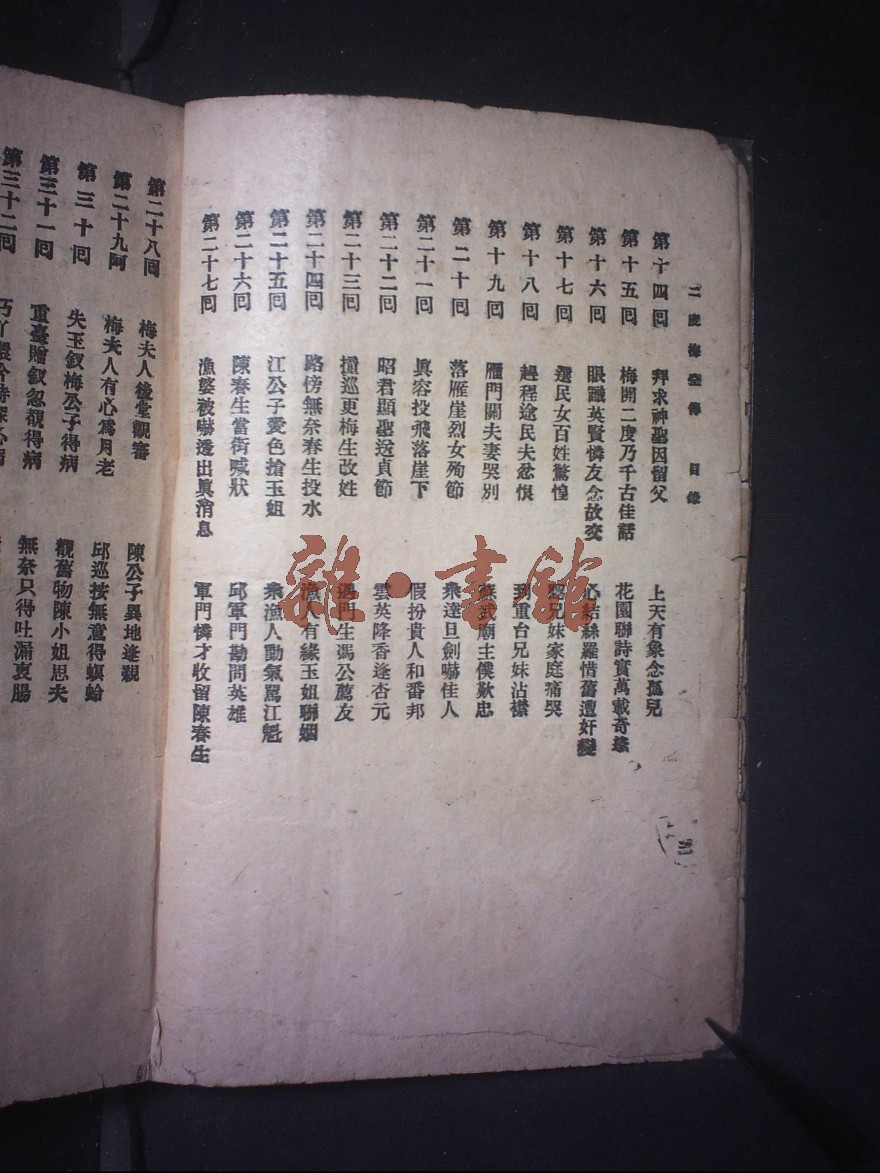 二度梅全傳 目錄
第十四回 拜求神聖因留父 上天有象念孤兒
第十五回 梅開二度乃千古佳話 花園聯詩實萬載奇緣
第十六回 眼識英賢憐友念故交 心結絲羅惜舊遭奸變
第十七回 選民女百姓驚惶 認兄妹家庭痛哭
第十八回 趕程途民夫忿恨 到重台兄妹沾襟
第十九回 雁門關夫妻哭別 蘇武廟主僕歎忠
第二十回 落雁崖烈女殉節 衆逹旦劍嚇佳人
第二十一回 眞容投飛落崖下 假扮貴人和番邦
第二十二回 昭君顯聖送貞節 雲英降香逢杏元
第二十三回 撞巡更梅生改姓 遇門生馮公薦友
第二十四回 路傍無奈春生投水 漁人有緣玉姐聯姻
第二十五回 江公子愛色搶玉姐 衆漁人動氣罵江魁
第二十六回 陳春生當街喊狀 邱軍門勘問英雄
第二十七回 漁婆被嚇透出眞消息 軍門憐才收留陳春生
第二十八回 梅夫人後堂觀審 陳公子異地逢親
第二十九阿 梅夫人有心爲月老 邱巡按無意得螟蛉
第三十回 失玉釵梅公子得病 觀舊物陳小姐思夫
第三十一回 重臺贈釵忽覩得病 無奈只得吐漏衷腸
第三十二回 巧丫
雜·書館